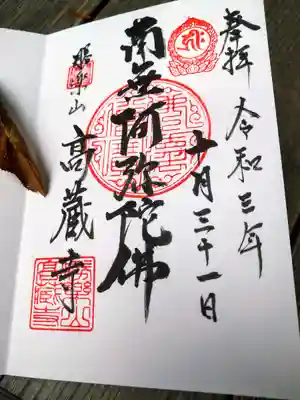 奉拝
令和三年
十月三十一日
南無阿弥陀佛
山
高蔵寺